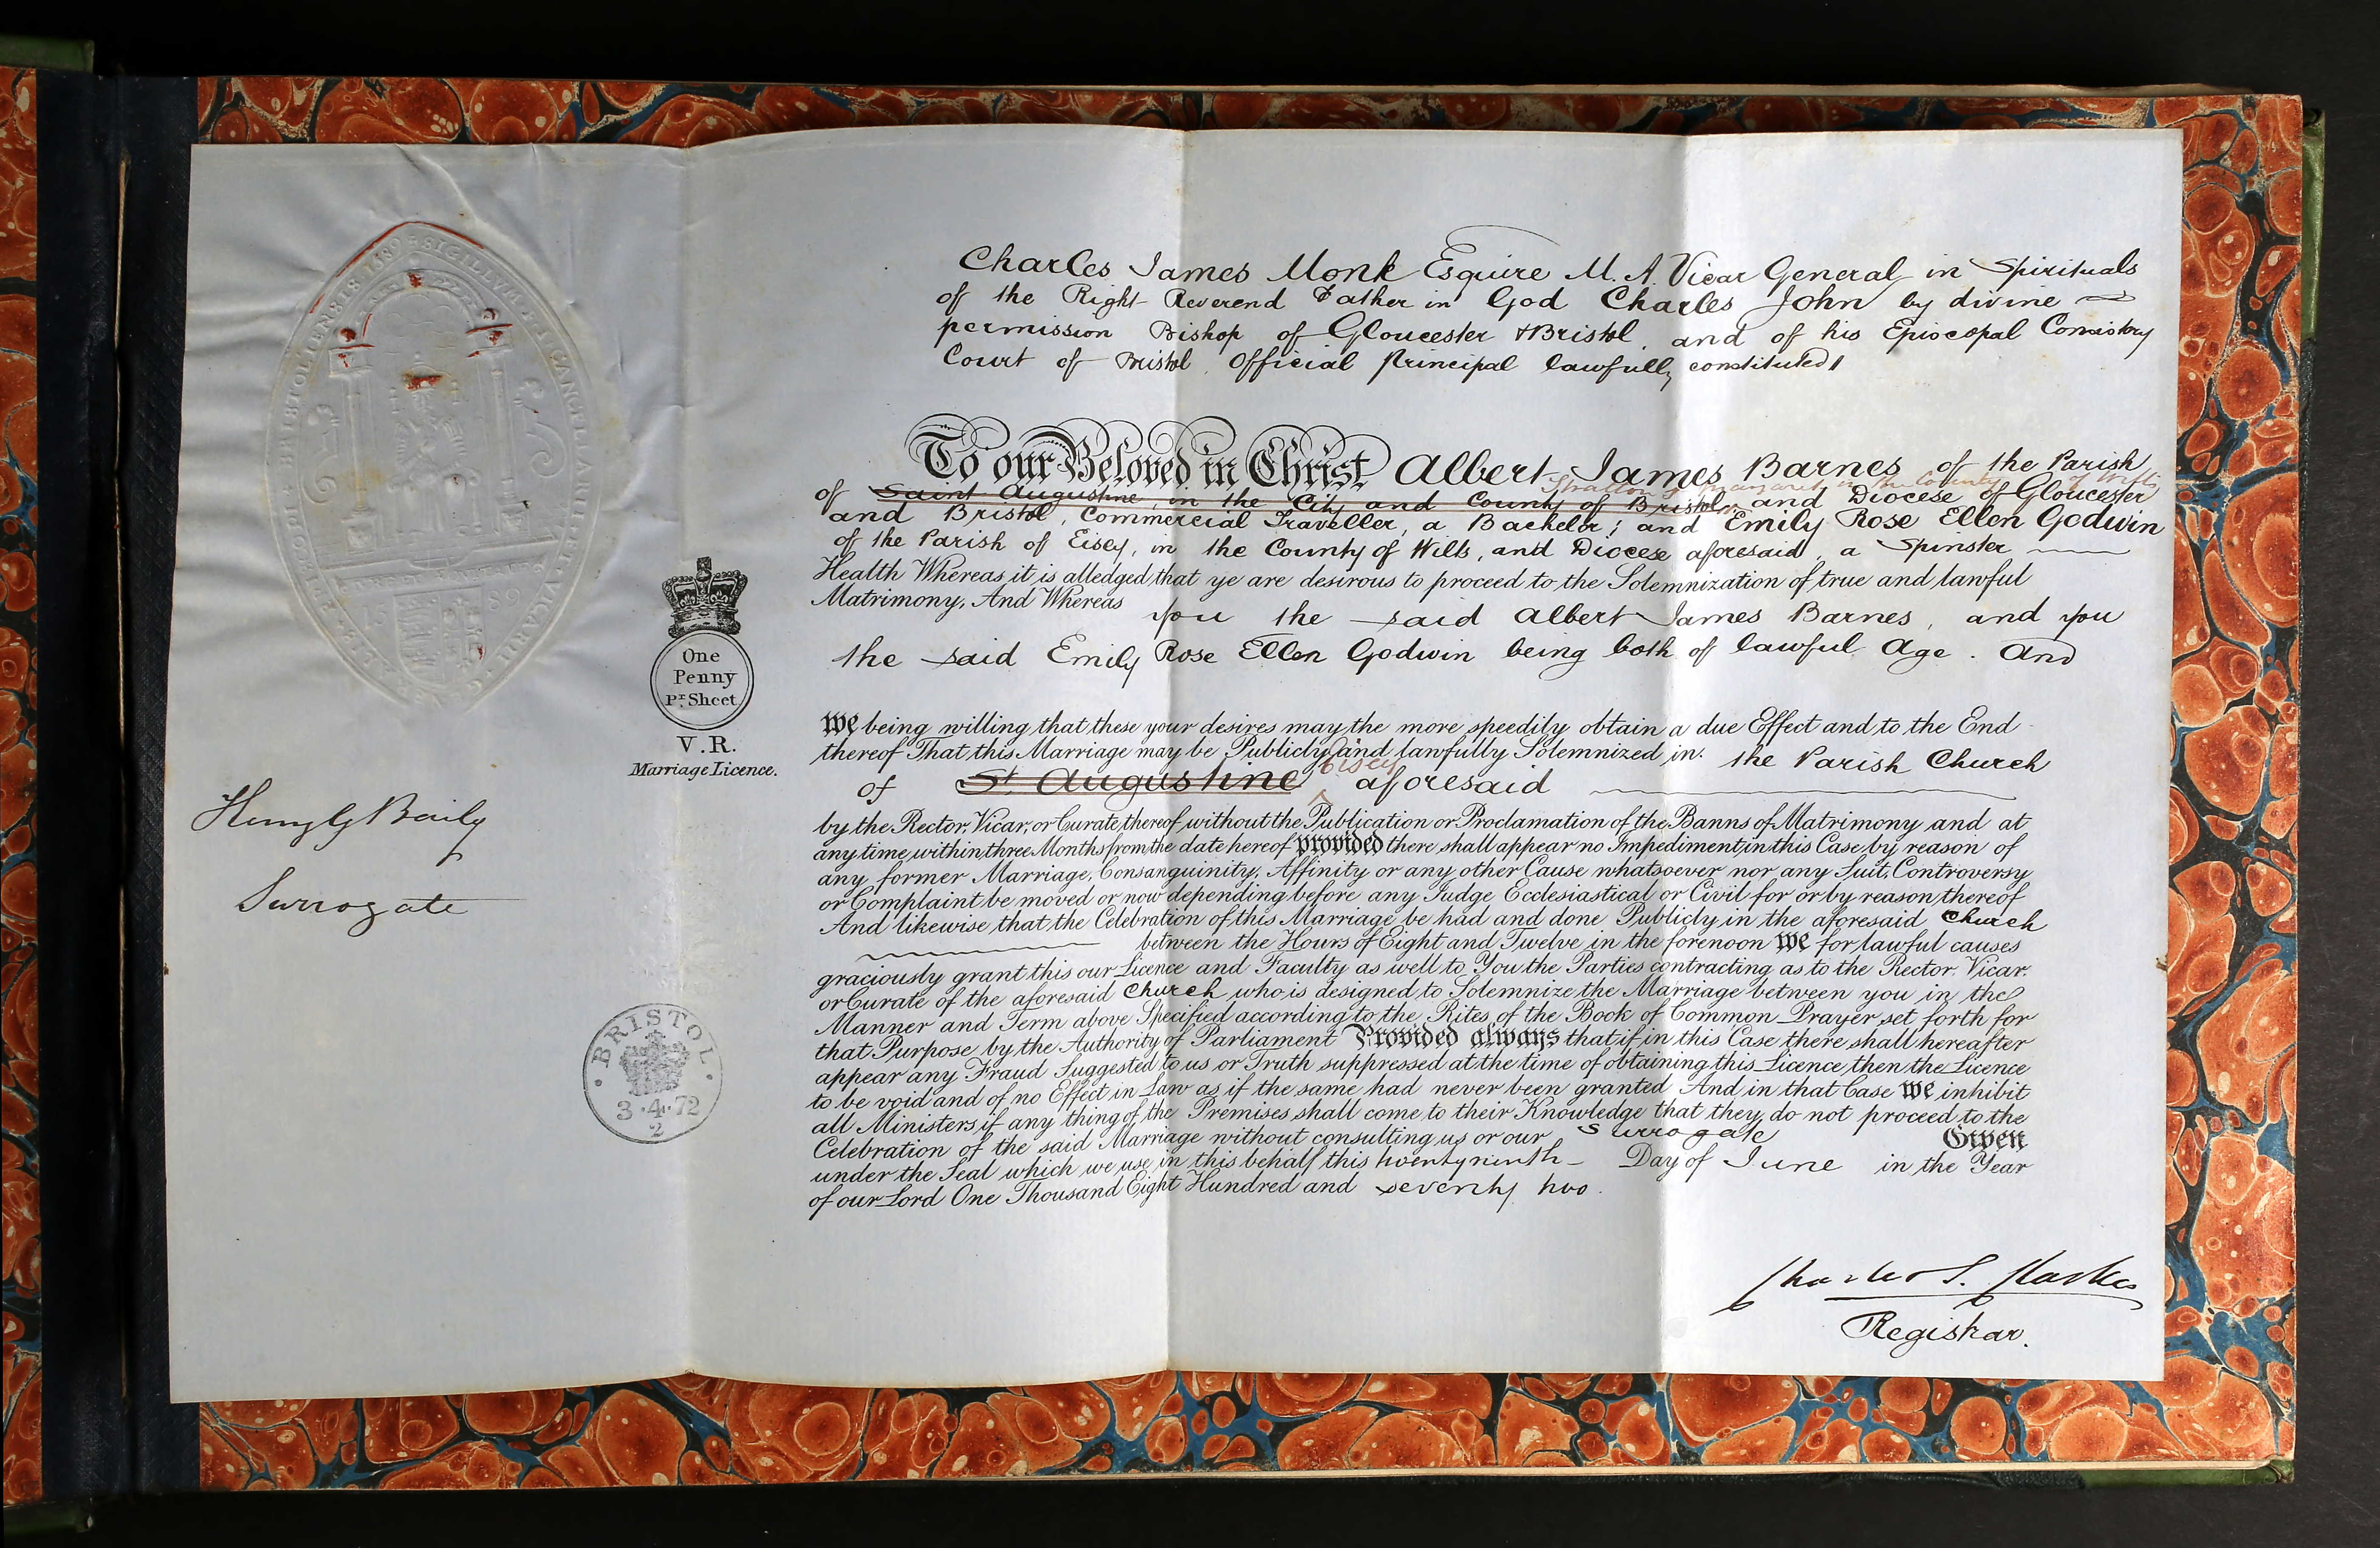 Charles James Monk Esquire M. A. Vicar General in Spirituals
of the Right Reverend Father in God Charles John by divine
permission Bishop of Gloucester & Bristol, and of his Episcopal Consistory
Court of Bristol, Official Principal lawfully constituted
To our Beloved in Christ Albert James Barnes of the Parish
Stratton St Margaret in the County of Wilts
of Saint Augustine, in the City and County of Bristol, and Diocese of Gloucester
and Bristol, Commercial Traveller, a Bachelor; and Emily Rose Ellen Godwin
of the Parish of Eisey, in the County of Wilts, and Diocese aforesaid, a Spinster
Health Whereas it is alledged that ye are desirous to proceed to the Solemnization of true and lawful
Matrimony, And Whereas you the said Albert James Barnes, and you
the said Emily Rose Ellen Godwin being both of lawful Age. And
We being willing that these your desires may the more speedily obtain a due Effect and to the End
thereof That this Marriage may be Publicly and lawfully Solemnized in the Parish Church
of St Augustine Eisey aforesaid
by the Rector, Vicar, or Curate, thereof without the Publication or Proclamation of the Banns of Matrimony and at
any time within three Months from the date hereof provided there shall appear no Impediment in this Case by reason of
any former Marriage, Consanguinity, Affinity or any other Cause whatsoever nor any Suit, Controversy
or Complaint be moved or now depending before any Judge Ecclesiastical or Civil for or by reason thereof
And likewise that the Celebration of this Marriage be had and done Publicly in the aforesaid Church
between the Hours of Eight and Twelve in the forenoon We for lawful causes
graciously grant this our Licence and Faculty as well to You the Parties contracting as to the Rector, Vicar,
or Curate of the aforesaid Church who is designed to Solemnize the Marriage between you in the
Manner and Term above Specified according to the Rites of the Book of Common Prayer set forth for
that Purpose by the Authority of Parliament Provided always that if in this Case there shall hereafter
appear any Fraud Suggested to us or Truth suppressed at the time of obtaining this Licence, then the Licence
to be void and of no Effect in Law as if the same had never been granted And in that Case We inhibit
all Ministers if any thing of the Premises shall come to their Knowledge that they do not proceed to the
Celebration of the said Marriage without consulting us or our Surrogate Given
under the Seal which we use in this behalf this twenty ninth Day of June in the Year
of our Lord One Thousand Eight Hundred and seventy two.
Registrar.
One
Penny
Pr. Sheet
V.R.
Marriage Licence.
Henry G Baily
Surrogate
BRISTOL
3.4.72
2